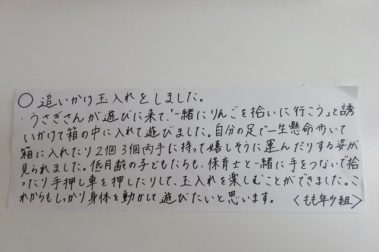 ○ 追いかけ玉入れをしました。
・うさぎさんが遊びに来て、「一緒にりんごを拾いに行こう」と誘
いかけて箱の中に入れて遊びました。自分の足で一生懸命歩いて
箱に入れたり2個3個両手に持って嬉しそうに運んだりする姿が
見られました。低月齢の子どもたちも、保育士と一緒に手をつないで拾
ったり手押し車を押したりして、玉入れを楽しむことができました。こ
れからもしっかり身体を動かして遊びたいと思います。 〈もも年少組〉